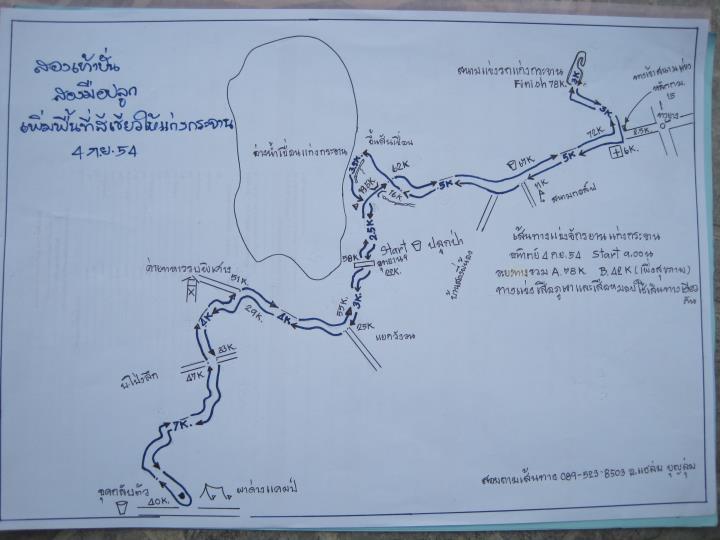 สองเท้าปั่น
สองมือปลูก
เพิ่มพื้นที่สีเขียวให้แก่งกระจาน
4 ก.ย. 54
สนามแข่งรถแก่งกระจาน
Finish 78K
3K
3K
72K
ท่ายาง
25K
6K.
67K
5K
11K
สนามกอล์ฟ
อ่างน้ำเขื่อนแก่งกระจาน
ขึ้นสันเขื่อน
3.5K
62K
16K
.5K
2.5K
58K
Start
ปลูกป่า
22K.
บ้านสองพี่น้อง
เส้นทางแข่งจักรยานแก่งกระจาน
อาทิตย์ 4 ก.ย. 54 Start 9.00น
ระยะทางรวม A. 78K B. 42K (เพื่อสุขภาพ)
ทางแข่งเสือภูเขาและเสือหมอบใช้เส้นทางเดียว
กัน
ค่ายทหารรบพิเศษ
51K
29K.
4K
4K
55K
3K
25K
แยกวังวน
33K
47K
7K.
จุดกลับตัว
40K.
ผาด่างแคมป์
สอบถามเส้นทาง 089-523-8503 อ.แฉล้ม บุญลุ่ม